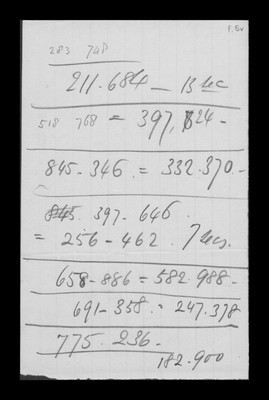 f. 5v
283 748
211.684 — 13 sec
518 768 = 397,824 -
845 - 346 . = 332.370. -
845. 397 - 646.
= 256 - 462 . 7 secs.
658 - 886 = 582.988. -
691 - 358. = 247.378
775. 236. -
182.900